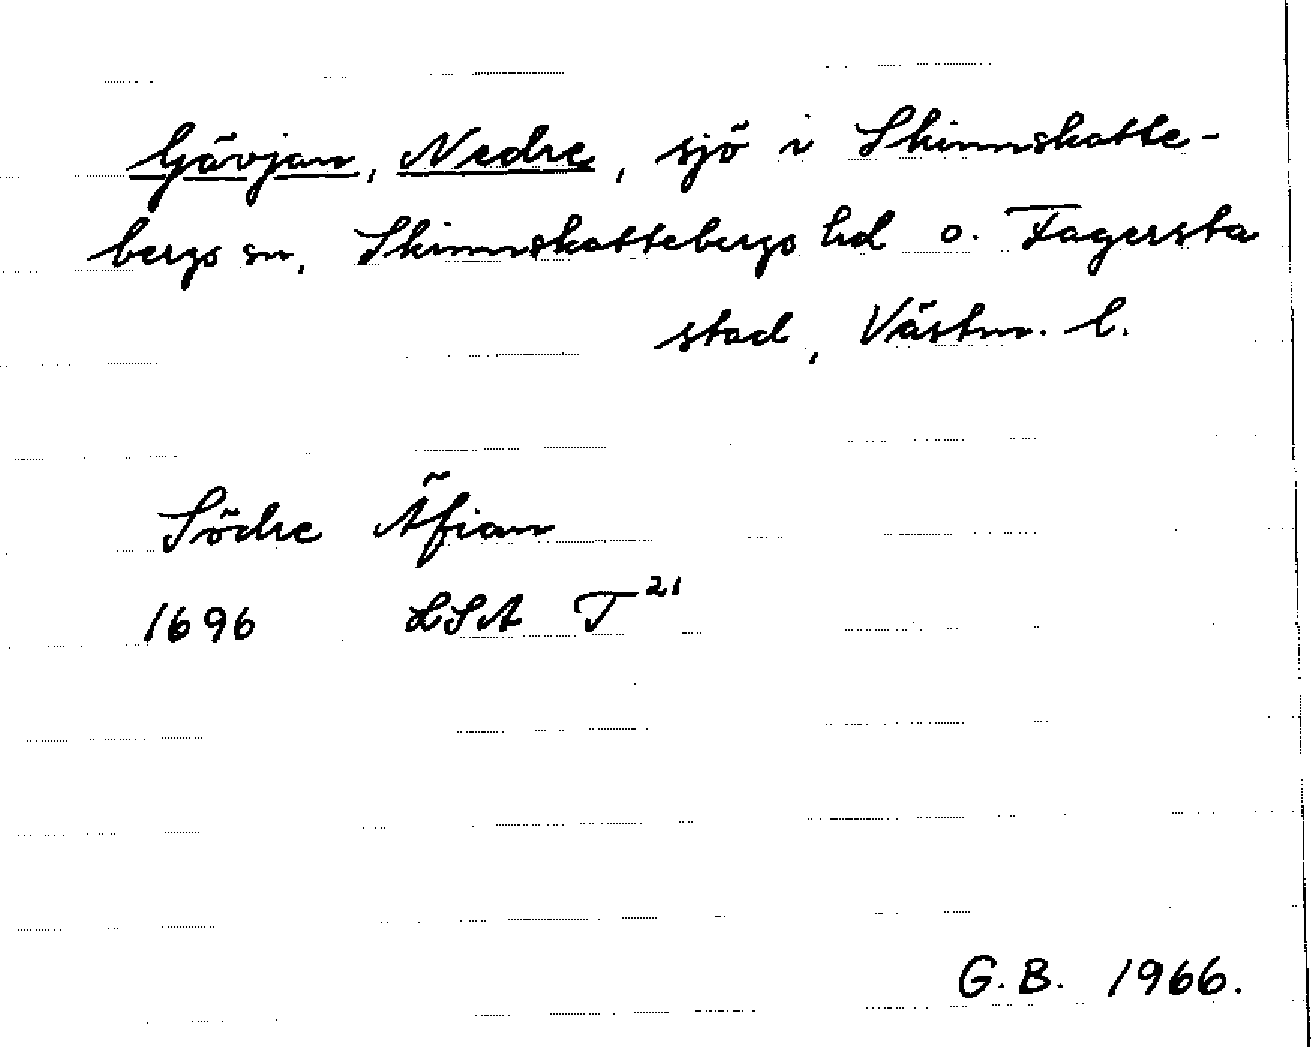 Gävjan, Nedre, sjö i Skinnskatte-
bergs sn, Skinnskattebergs hd o. Fagersta
stad, Västm. l.
Södre Äfian
1696 LSA T 21
G.B. 1966.